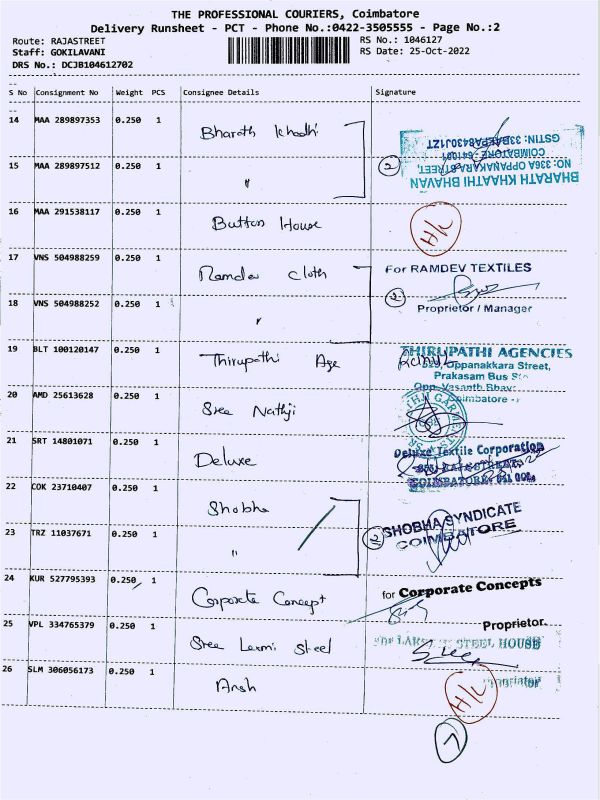 THE PROFESSIONAL COURIERS, Coimbatore
Delivery Runsheet - PCT - Phone No.:0422-3505555 - Page No.:2
Route: RAJASTREET
RS No.: 1046127
Staff: GOKILAVANI
RS Date: 25-Oct-2022
DRS No.: DCJB104612702
S No Consignment No Weight PCS Consignee Details Signature
14 MAA 289897353 0.250 1 Bharath Khadhi
15 MAA 289897512 0.250 1 "
2
BHARATH KHAATHI BHAVAN
NO: 336A OPPANAKARA STREET,
COIMBATORE - 641001
16 MAA 291538117 0.250 1 Button House H/L
17 VNS 504988259 0.250 1 Ramdev Cloth For RAMDEV TEXTILES
18 VNS 504988252 0.250 1 "
2
Proprietor / Manager
19 BLT 100120147 0.250 1 Thirupathi Age THIRUPATHI AGENCIES
Oppanakkara Street,
Prakasam Bus
Opp. Vasanth Bhav
Coimbatore -
20 AMD 25613628 0.250 1 Sree Nathji
GARMENTS
21 SRT 14801071 0.250 1 Deluxe Deluxe Textile Corporation
22 COK 23710407 0.250 1 Shobha
23 TRZ 11037671 0.250 1 "
2
SHOBHA SYNDICATE
COIMBATORE
24 KUR 527795393 0.250 1 Corporate Concept for Corporate Concepts
Proprietor.
25 VPL 334765379 0.250 1 Sree Laxmi Steel STEEL HOUSE
26 SLM 306056173 0.250 1 Ansh H/L
7